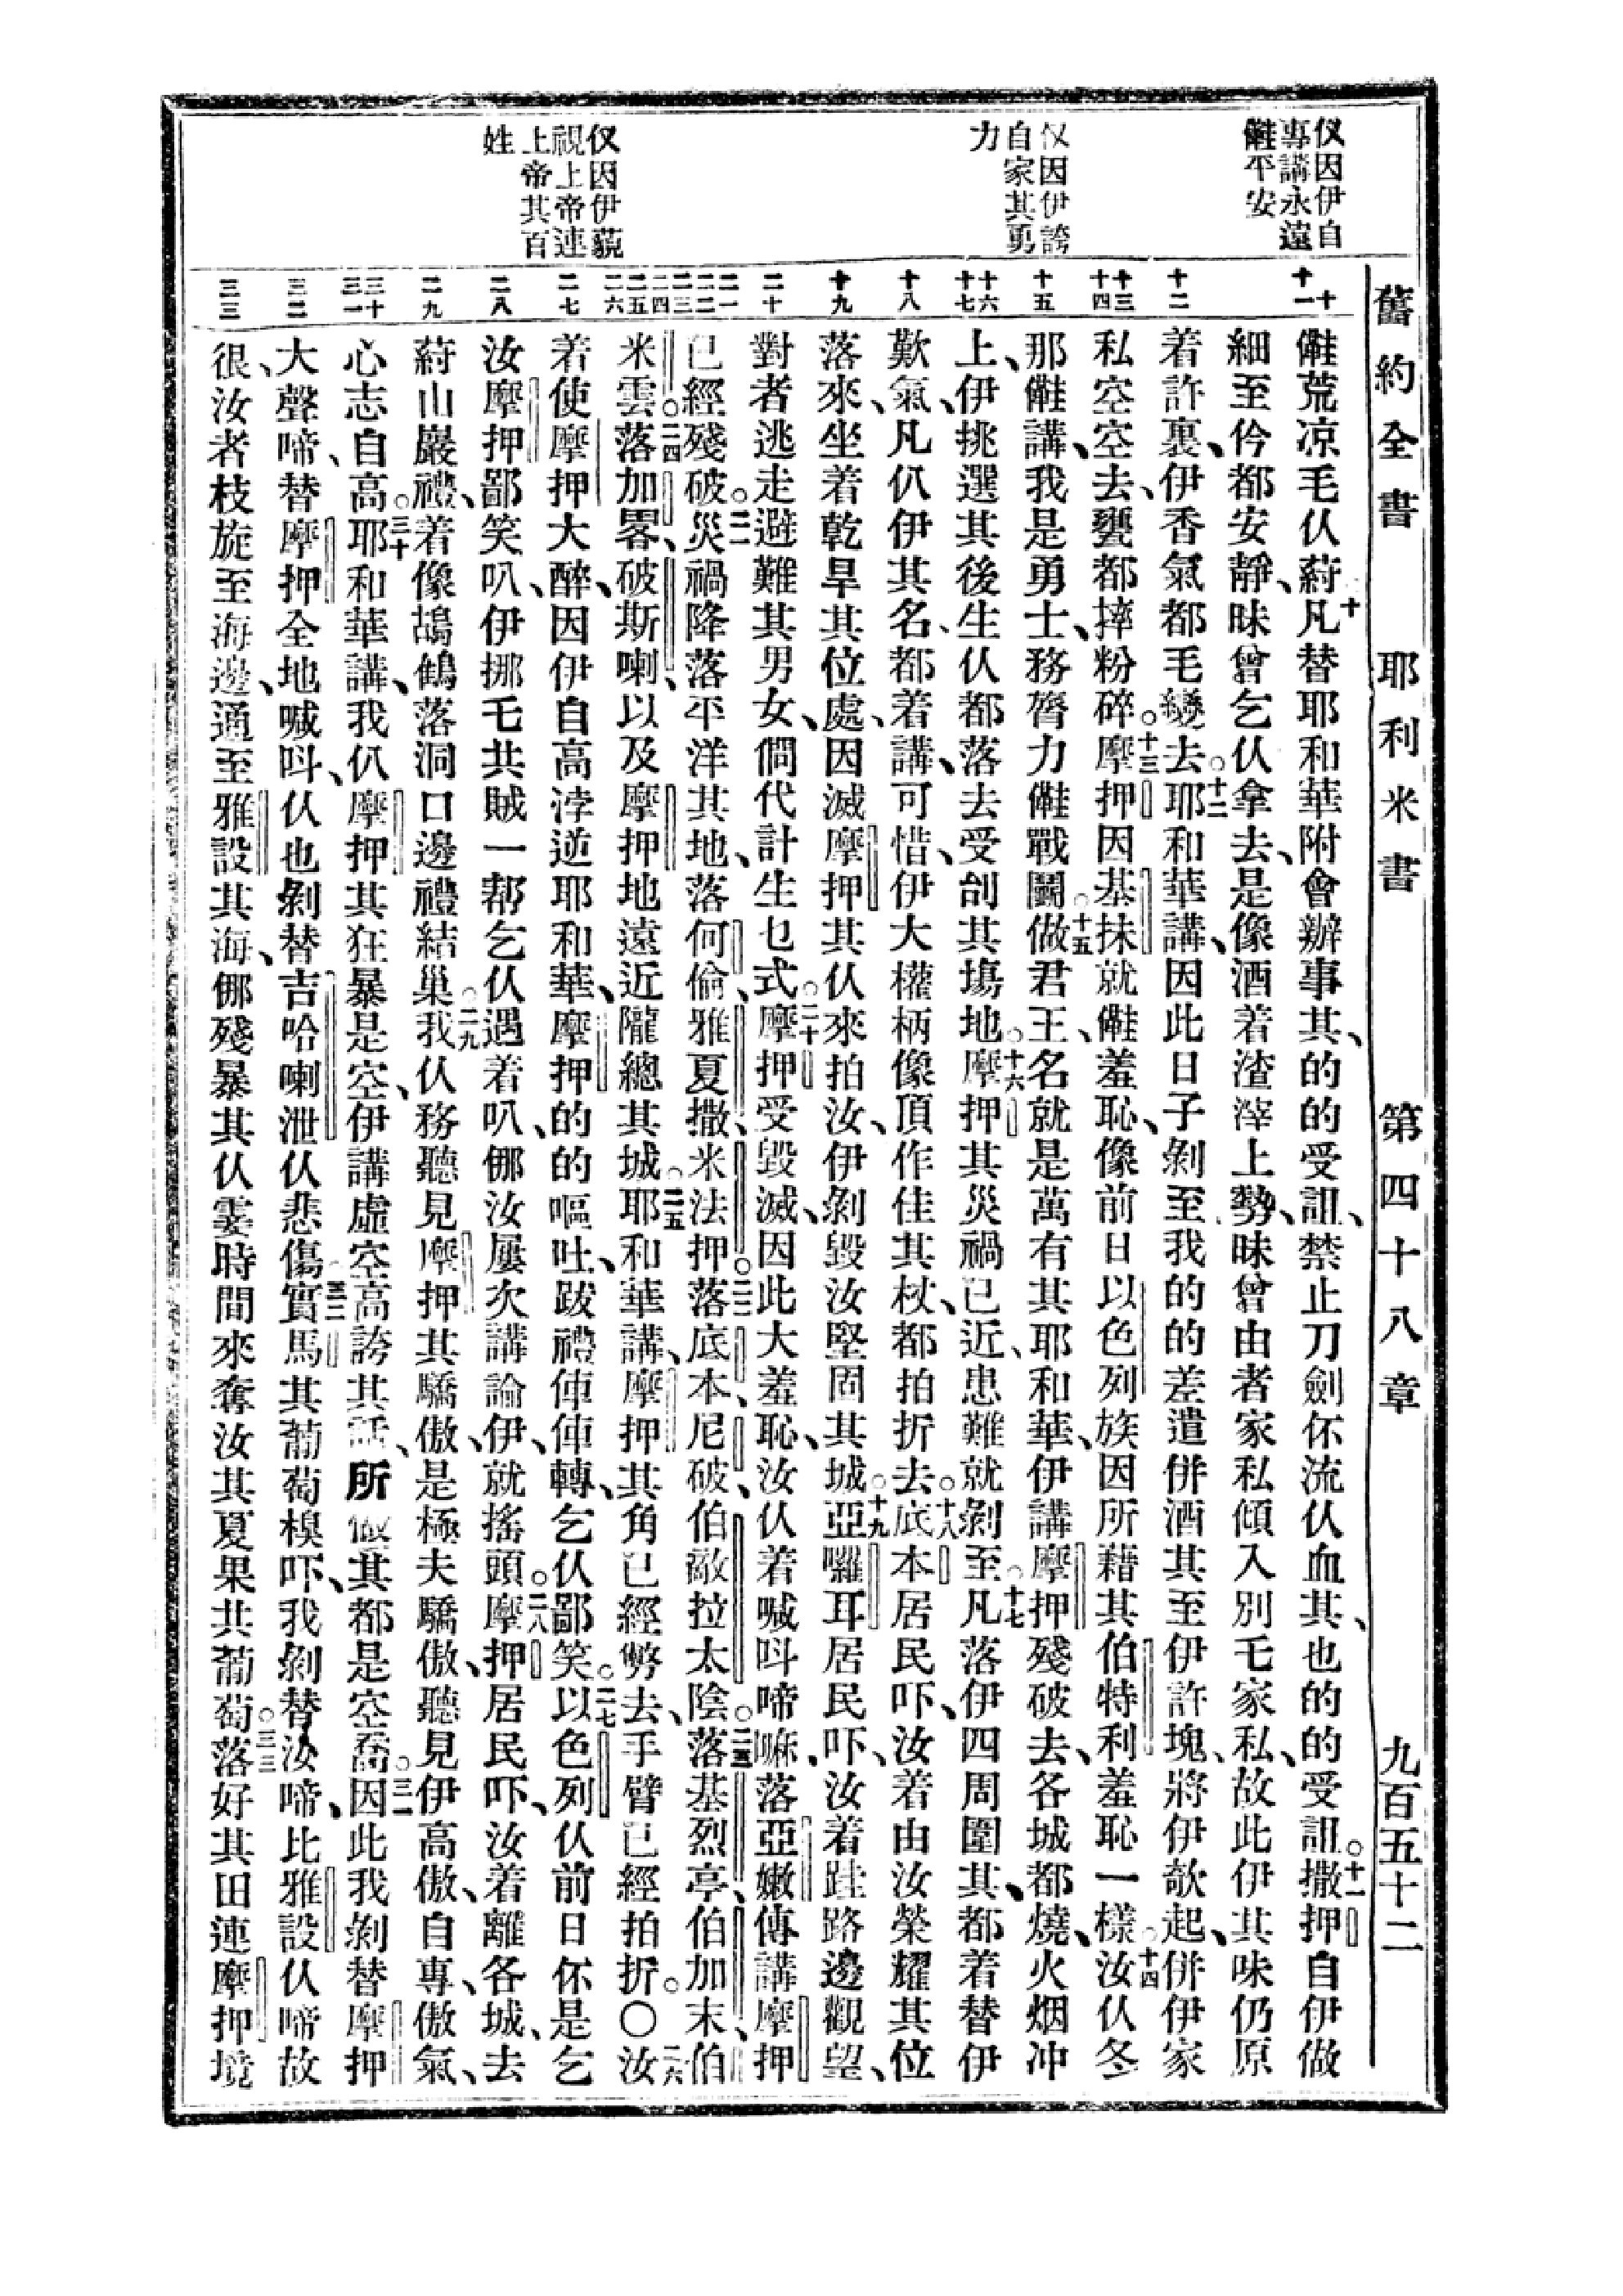 舊約全書 耶利米書 第四十八章 九百五十二
仅因伊自
專講永遠
𣍐平安
仅因伊誇
自家其勇
力
仅因伊藐
視上帝連
上帝其百
姓
十
十一
十二
十三
十四
十五
十六
十七
十八
十九
二十
二一
二二
二三
二四
二五
二六
二七
二八
二九
三十
三一
三二
三三
荒凉毛仈蒔、十凡替耶和華附會辦事其、的的受詛、禁止刀劍伓流仈血其、也的的受詛。十一撒押自伊做
細至仱都安靜、昧曾乞仈拿去、是像酒着渣滓上勢、昧曾由者家私傾入別乇家私、故此伊其味仍原
着許裏、伊香氣都毛變去。十二耶和華講、因此日子剝至我的的差遣併酒其至伊許塊、將伊欹起、併伊家
私空空去、甕都摔粉碎。十三摩押因基抹就羞恥、像前日以色列族因所藉其伯特利羞恥一樣。十四汝仈冬
那講、我是勇士、務膂力戰鬭。十五做君王、名就是萬有其耶和華、伊講摩押殘破去、各城都燒、火烟冲
上、伊挑選其後生仈都落去受刣其塲地。十六摩押其災禍已近、患難就剝至。十七凡落伊四周圍其、都着替伊
歎氣、凡仈伊其名、都着講、可惜、伊大權柄像頂作佳其杖、都拍折去。十八底本居民吓、汝着由汝榮耀其位
落來、坐着乾旱其位處、因滅摩押其仈來拍汝、伊剝毀汝堅固其城。十九亞囉耳居民吓、汝着跬路邊觀望、
對者逃走避難其男女、問代計生乜式。二十摩押受毀滅、因此大羞恥、汝仈着喊呌啼嘛、落亞嫩傳講摩押
已經殘破。二一災禍降落平洋其地、落何倫、雅夏撒、米法押。二二落底本、尼破、伯敵拉太陰。二三落基烈亭、伯加末、伯
米雲。二四落加畧、破斯喇、以及摩押地遠近隴總其城。二五耶和華講、摩押其角已經劈去、手臂已經拍折。〇二六汝
着使摩押大醉、因伊自高浡逆耶和華、摩押的的嘔吐、跋禮俥俥轉、乞仈鄙笑。二七以色列仈前日伓是乞
汝摩押鄙笑叭、伊挪毛共賊一帮乞仈遇着叭、㑚汝屢次講論伊、就搖頭。二八摩押居民吓、汝着離各城、去
蒔山巖禮、着像鴣鶴落洞口邊禮結巢。二九我仈務聽見摩押其驕傲、是極夫驕傲、聽見伊高傲、自專、傲氣、
心志自高。三十耶和華講、我仈摩押其狂暴是空、伊講虛空高誇其話、所做其都是空喬。三一因此我剝替摩押
大聲啼、替摩押全地喊呌、仈也剝替吉哈喇泄仈悲傷實。三二馬其葡萄模吓、我剝替汝啼、比雅設仈啼故
很、汝者枝旋至海邊、通至雅設其海、㑚殘暴其仈霎時間來奪汝其夏果共葡萄。三三落好其田連摩押境